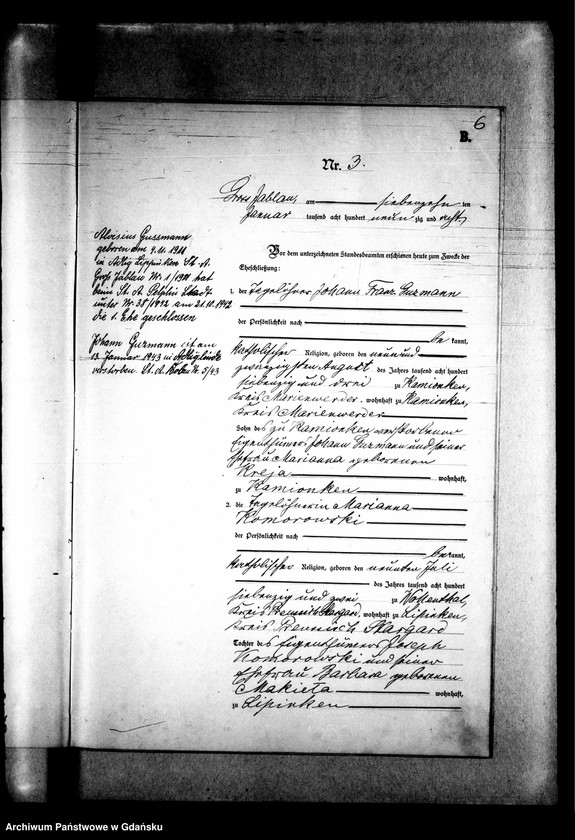 6
B.
Nr. 3.
Gross Jablau, am siebenzehn ten
Januar tausend acht hundert neun zig und acht.
Aloisius Gussmann
geboren am 9.11.1911
in Adlig Lippinken St. A.
Groß Jablau Nr. 1/1911 hat
beim St. A. Pelplin Stadt
unter Nr. 38/1942 am 31.10.1942
die 1. Ehe geschlossen
Johann Guzmann ist am
13. Januar 1943 in
verstorben. St. A. Nr. 5/43
Vor dem unterzeichneten Standesbeamten erschienen heute zum Zwecke der
Eheschließung:
1. der Tagelöhner Johann Franz Guzmann
der Persönlichkeit nach
be kannt,
katholischer Religion, geboren den neunund-
zwanzigsten August des Jahres tausend acht hundert
siebenzig und drei zu Kamionken,
Kreis Marienwerder, wohnhaft zu Kamionken,
Kreis Marienwerder
Sohn des zu Kamionken verstorbenen
Eigenthümers Johann Guzmann und seiner
Ehefrau Marianna geborenen
Kreja wohnhaft,
zu Kamionken
2. die Tagelöhnerin Marianna
Komorowski
der Persönlichkeit nach
be kannt,
katholischer Religion, geboren den neunten Juli
des Jahres tausend acht hundert
siebenzig und zwei zu Wollenthal,
Kreis Preussisch Stargard, wohnhaft zu Lipinken,
Kreis Preussisch Stargard
Tochter des Eigenthümers Joseph
Komorowski und seiner
Ehefrau Barbara geborenen
Makieta wohnhaft,
zu Lipinken
Archiwum Państwowe w Gdańsku